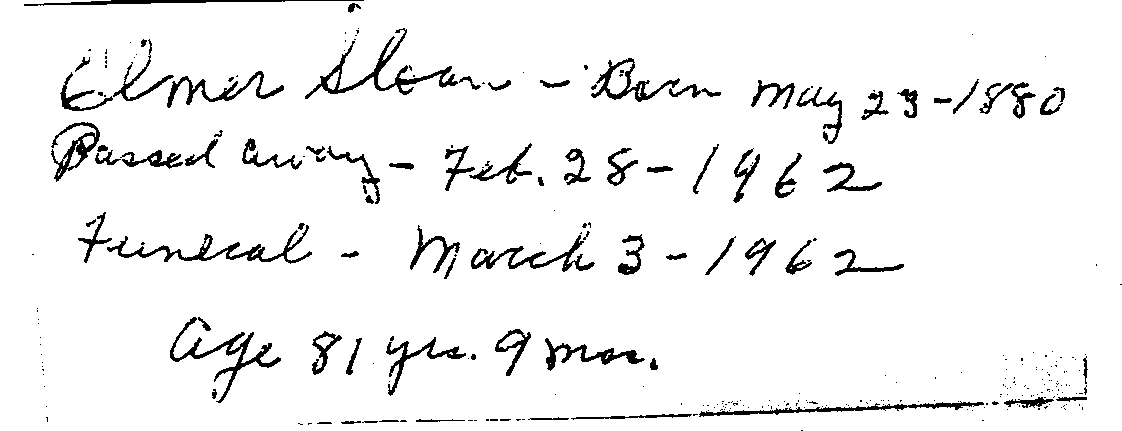 Elmer Sloan - Born May 23-1880
Passed away - Feb. 28-1962
Funeral - March 3-1962
Age 81 yrs. 9 mos.